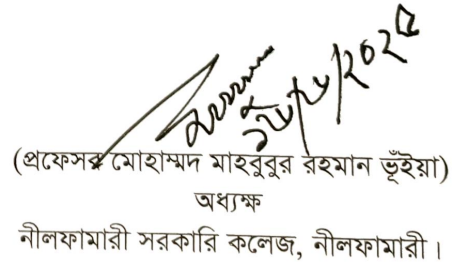 (প্রফেসর মোহাম্মদ মাহবুবুর রহমান ভূঁইয়া)
অধ্যক্ষ
নীলফামারী সরকারি কলেজ, নীলফামারী।